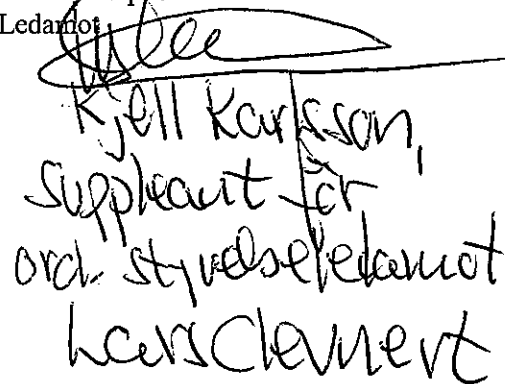 Ledamot
Kjell Karlsson,
suppleant för
ord. styrelseledamot
Lars Clevnert